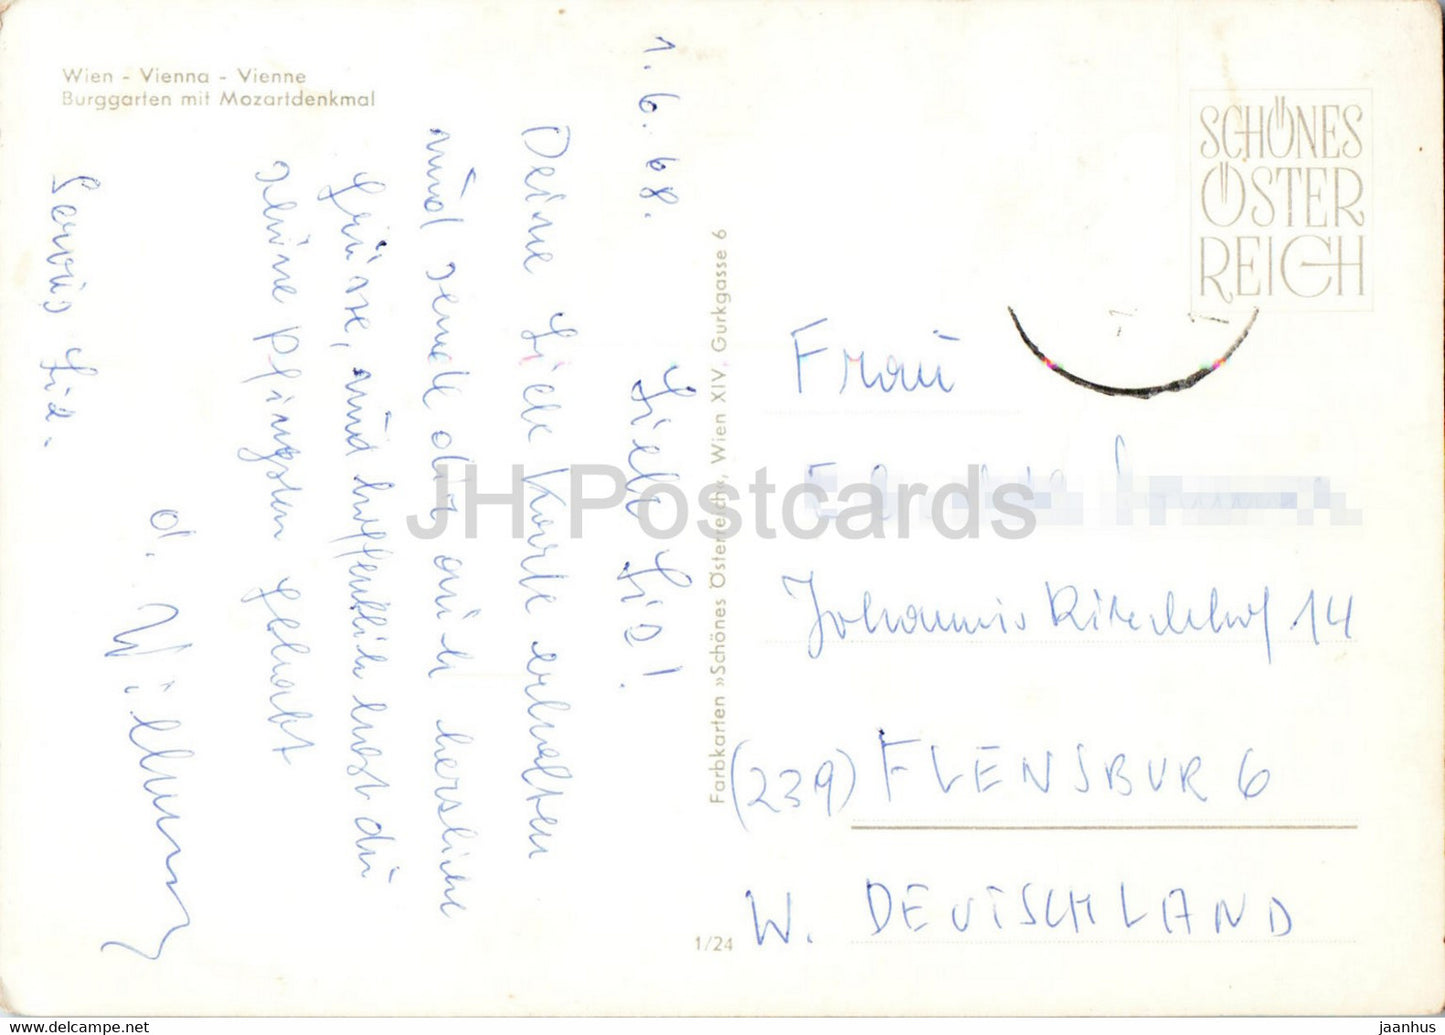 Wien - Vienna - Vienne
Burggarten mit Mozartdenkmal
1.6.68.
Liebe Lis!
Deine Liebe Karte erhalten
und sende dir auch herzliche
Grüsse, und hoffentlich hast du
schöne Pfingsten gehabt
d. Willi
Servus Lis.
Farbkarten »Schönes Österreich«, Wien XIV, Gurkgasse 6
1/24
SCHÖNES
ÖSTER
REICH
Frau
Johanniskirchhof 14
(239) FLENSBURG
W. DEUTSCHLAND
JH Postcards
www.delcampe.net
jaanhus